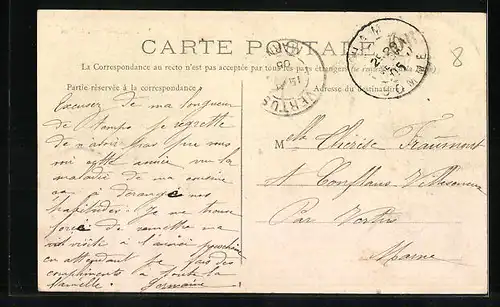 CARTE POSTALE
La Correspondance au recto n'est pas acceptée par tous les pays étrangers
Partie réservée à la correspondance
Adresse du destinataire
8
VERTUS
05
Excusez de ma longueur
de temps je regrette
de n'avoir pas pu vous
cette année vu la
maladie de ma cousine
a dérangé nos
habitudes. Je me trouve
forcé de remettre ma
visite à l'année prochaine
en attendant je fais des
compliments à toute la
famille. Germaine
Melle
à Conflans Villeseneux
Par Vertus
Marne